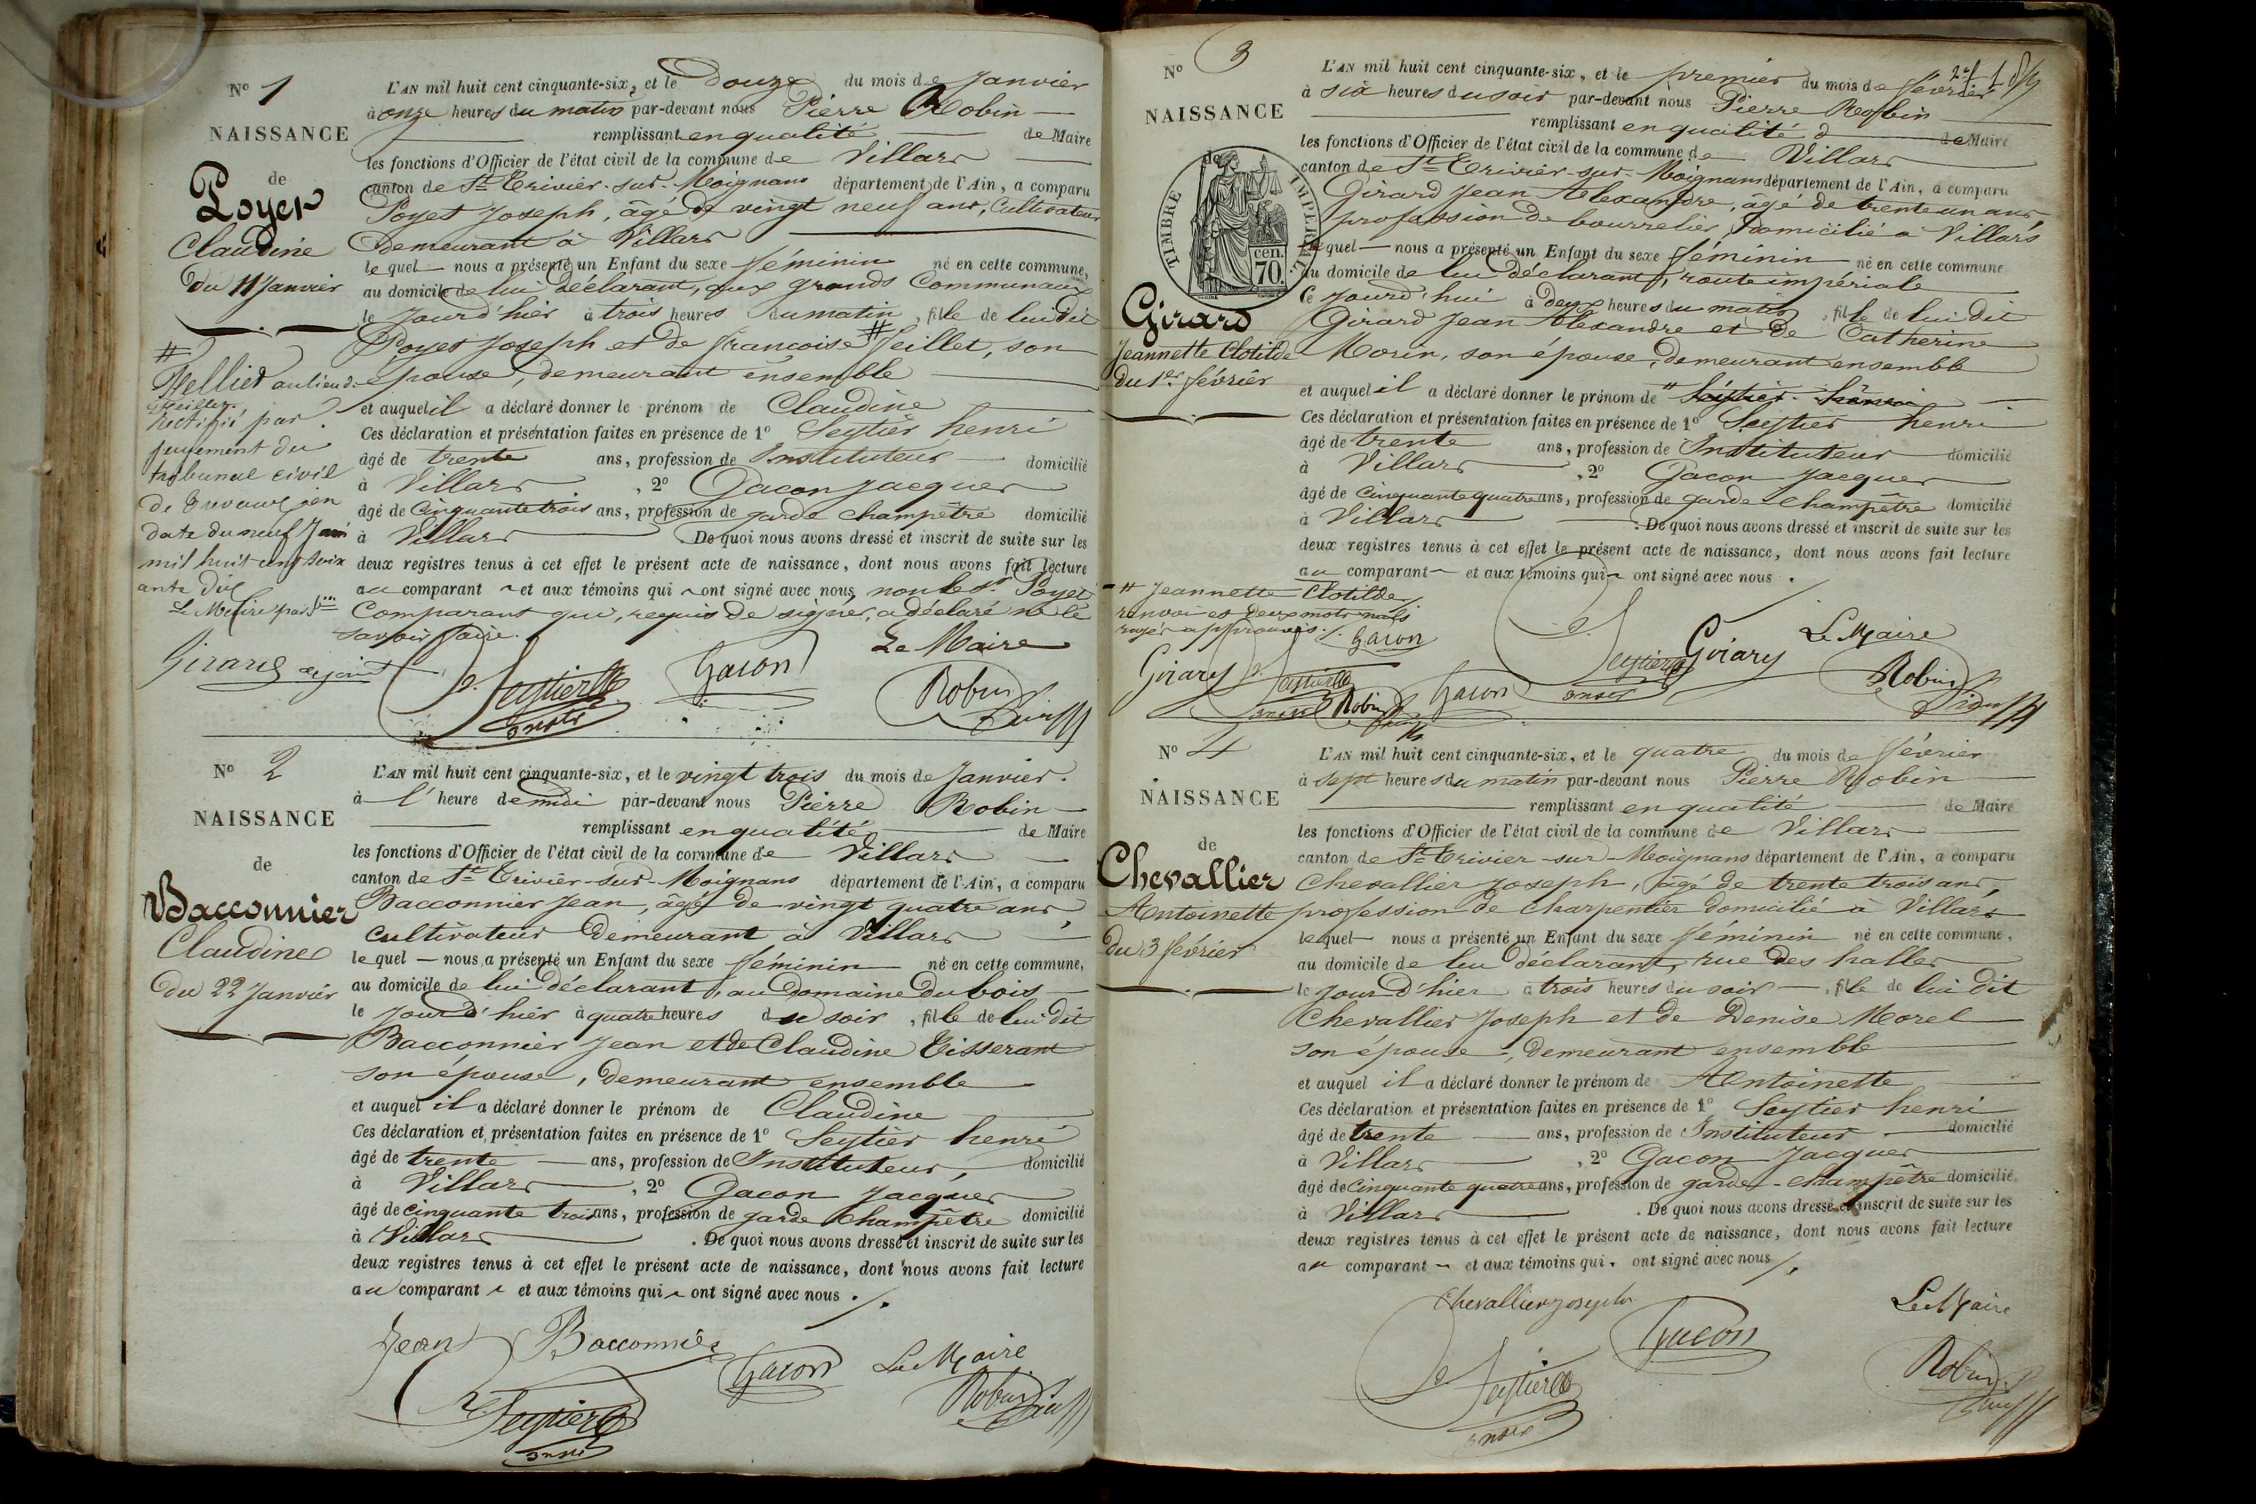 N° 1
NAISSANCE
de
Poyet
Claudine
du 11 Janvier
L'AN mil huit cent cinquante-six, et le douze du mois de Janvier
à onze heures du matin par-devant nous Pierre Robin
remplissant en qualité de Maire
les fonctions d'Officier de l'état civil de la commune de Villars
canton de St Trivier-sur-Moignans département de l'Ain, a comparu
Poyet Joseph, âgé de vingt neuf ans, Cultivateur
demeurant à Villars
lequel nous a présenté un Enfant du sexe féminin né en cette commune,
au domicile de lui déclarant, aux grands Communaux
le jour d'hier à trois heures du matin, fille de lui dit
Poyet Joseph et de francoise # Feillet, son
épouse, demeurant ensemble
et auquel il a déclaré donner le prénom de Claudine
Ces déclaration et présentation faites en présence de 1° Seytier henri
âgé de trente ans, profession de Instituteur domicilié
à Villars, 2° Gacon Jacques
âgé de Cinquante trois ans, profession de garde champêtre domicilié
à Villars. De quoi nous avons dressé et inscrit de suite sur les
deux registres tenus à cet effet le présent acte de naissance, dont nous avons fait lecture
au comparant et aux témoins qui ont signé avec nous, non le Sr Poyet
Comparant qui, requis de signer, a déclaré ne le
savoir faire.
#
Pellier au lieu de
Feillet
Rectifié par
jugement du
tribunal civil
de Trevoux en
date du neuf Juin
mil huit cent soix
ante dix
Le Maire par
Girard adjoint
Seytier
Gacon
Le Maire
Robin
N° 2
NAISSANCE
de
Bacconnier
Claudine
du 22 Janvier
L'AN mil huit cent cinquante-six, et le vingt trois du mois de Janvier.
à l'heure de midi par-devant nous Pierre Robin
remplissant en qualité de Maire
les fonctions d'Officier de l'état civil de la commune de Villars
canton de St Trivier-sur-Moignans département de l'Ain, a comparu
Bacconnier Jean, âgé de vingt quatre ans,
cultivateur demeurant à Villars
lequel nous a présenté un Enfant du sexe féminin né en cette commune,
au domicile de lui déclarant, au domaine Dubois
le jour d'hier à quatre heures du soir, fille de lui dit
Bacconnier Jean et de Claudine Tisserant
son épouse, demeurant ensemble
et auquel il a déclaré donner le prénom de Claudine
Ces déclaration et présentation faites en présence de 1° Seytier henri
âgé de trente ans, profession de Instituteur, domicilié
à Villars, 2° Gacon Jacques
âgé de cinquante trois ans, profession de garde champêtre domicilié
à Villars. De quoi nous avons dressé et inscrit de suite sur les
deux registres tenus à cet effet le présent acte de naissance, dont nous avons fait lecture
au comparant et aux témoins qui ont signé avec nous.
Jean Bacconnier
Gacon
Le Maire
Robin
Seytier
N° 3
NAISSANCE
TIMBRE IMPERIAL
cen.
70.
Girard
Jeannette Clotilde
du 1er février
L'AN mil huit cent cinquante-six, et le premier du mois de février
à six heures du soir par-devant nous Pierre Robin
remplissant en qualité de Maire
les fonctions d'Officier de l'état civil de la commune de Villars
canton de St Trivier-sur-Moignans département de l'Ain, a comparu
Girard Jean Alexandre, âgé de trente un ans
profession de bourrelier, domicilié à Villars
lequel nous a présenté un Enfant du sexe féminin né en cette commune
au domicile de lui déclarant, route impériale
Ce jourd'hui à deux heures du matin, fille de lui dit
Girard Jean Alexandre et de Catherine
Morin, son épouse, demeurant ensemble
et auquel il a déclaré donner le prénom de #
Ces déclaration et présentation faites en présence de 1° Seytier henri
âgé de trente ans, profession de Instituteur domicilié
à Villars, 2° Gacon Jacques
âgé de Cinquante quatre ans, profession de garde champêtre domicilié
à Villars. De quoi nous avons dressé et inscrit de suite sur les
deux registres tenus à cet effet le présent acte de naissance, dont nous avons fait lecture
au comparant et aux témoins qui ont signé avec nous.
# Jeannette Clotilde
renvoi et deux mots nuls
rayés approuvés.
Gacon
Girard
Seytier
Robin
Gacon
Seytier
Girard
Le Maire
Robin
N° 4
NAISSANCE
de
Chevallier
Antoinette
du 3 février
L'AN mil huit cent cinquante-six, et le quatre du mois de février
à sept heures du matin par-devant nous Pierre Robin
remplissant en qualité de Maire
les fonctions d'Officier de l'état civil de la commune de Villars
canton de St Trivier-sur-Moignans département de l'Ain, a comparu
Chevallier Joseph, âgé de trente trois ans,
profession de charpentier domicilié à Villars
lequel nous a présenté un Enfant du sexe féminin né en cette commune,
au domicile de lui déclarant, rue des halles
le jour d'hier à trois heures du soir, fille de lui dit
Chevallier Joseph et de Denise Morel
son épouse, demeurant ensemble
et auquel il a déclaré donner le prénom de Antoinette
Ces déclaration et présentation faites en présence de 1° Seytier henri
âgé de trente ans, profession de Instituteur domicilié
à Villars, 2° Gacon Jacques
âgé de Cinquante quatre ans, profession de garde-champêtre domicilié
à Villars. De quoi nous avons dressé et inscrit de suite sur les
deux registres tenus à cet effet le présent acte de naissance, dont nous avons fait lecture
au comparant et aux témoins qui ont signé avec nous.
Chevallier Joseph
Gacon
Le Maire
Seytier
Robin